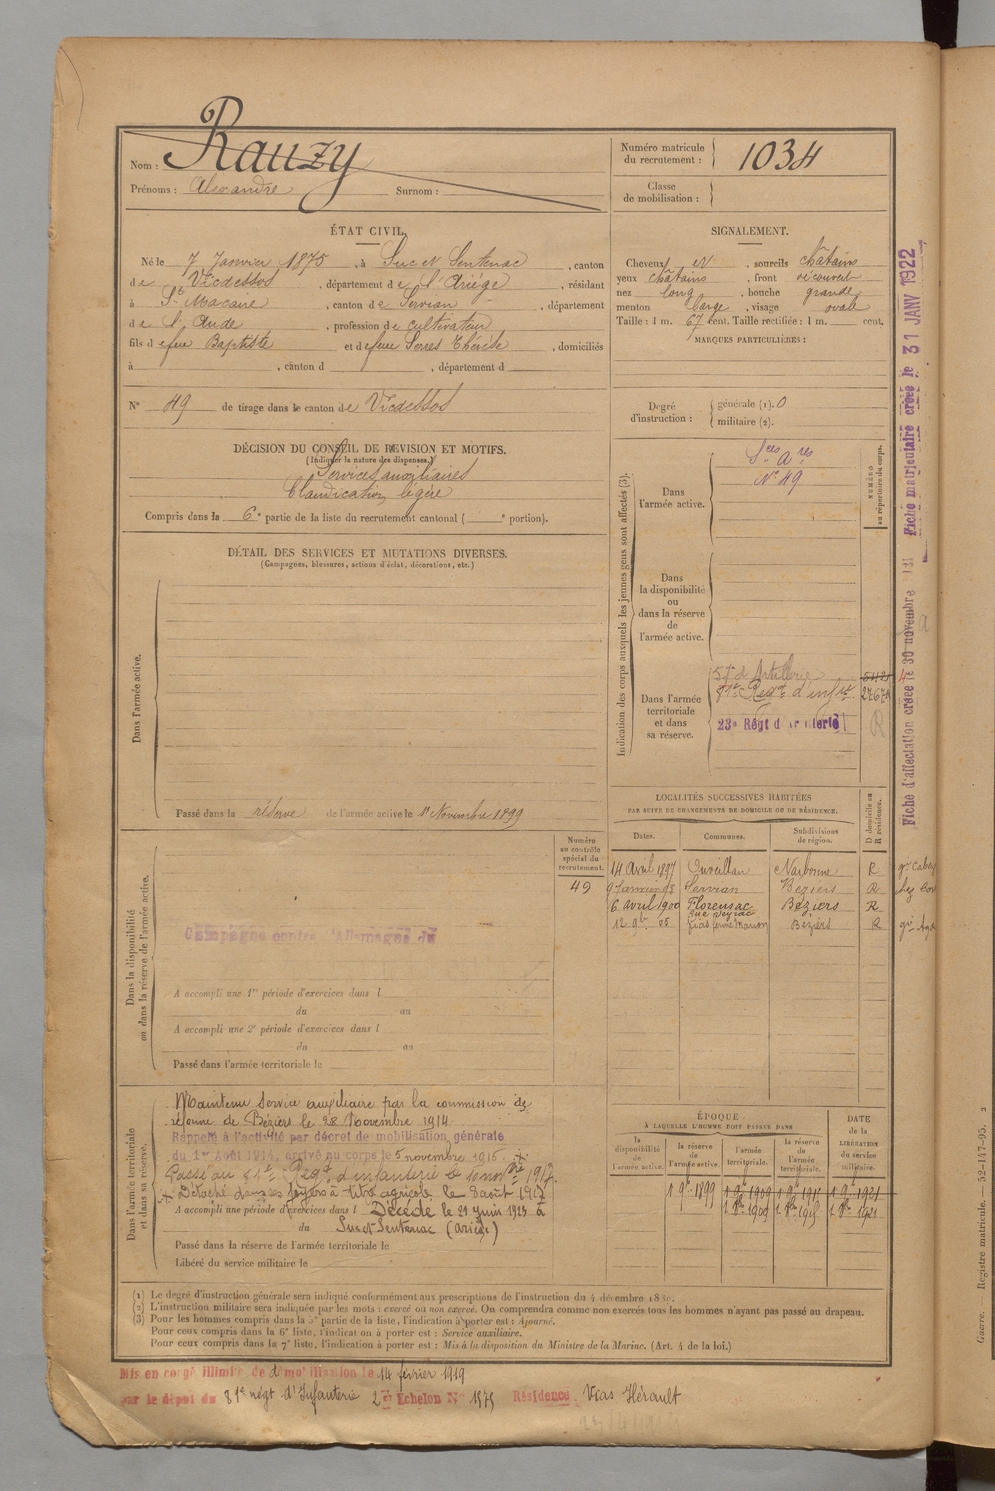 Nom : Rauzy
Prénoms : Alexandre Surnom :
Numéro matricule du recrutement : 1034
Classe de mobilisation :
ÉTAT CIVIL.
Né le 7 Janvier 1875, à Suc et Sentenac, canton
de Vicdessos, département de l'Ariége, résidant
à St Macaire, canton de Servian, département
de l'Aude, profession de cultivateur
fils de feu Baptiste et de feue Serres Thérèse, domiciliés
à , canton d , département d
N° 49 de tirage dans le canton de Vicdessos
SIGNALEMENT.
Cheveux et , sourcils châtains
yeux châtains , front découvert
nez long , bouche grande
menton large , visage ovale
Taille : 1 m. 67 cent. Taille rectifiée : 1 m. cent.
MARQUES PARTICULIÈRES :
Degré d'instruction : générale (1). 0
militaire (2).
DÉCISION DU CONSEIL DE REVISION ET MOTIFS.
(Indiquer la nature des dispenses.)
Services auxiliaires
Claudication légère
Compris dans la 6e partie de la liste du recrutement cantonal ( e portion).
DÉTAIL DES SERVICES ET MUTATIONS DIVERSES.
(Campagnes, blessures, actions d'éclat, décorations, etc.)
Dans l'armée active.
Passé dans la réserve de l'armée active le 1er Novembre 1899
Indication des corps auxquels les jeunes gens sont affectés (3).
NUMÉRO au répertoire du corps.
Dans l'armée active.
Sces Aires
N° 49
Dans la disponibilité ou dans la réserve de l'armée active.
Dans l'armée territoriale et dans sa réserve.
d'Artillerie
Regt d'infie
23e Régt d'Artillerie
R
Fiche matriculaire créée le 31 JANV 1922
Fiche d'affectation créée le 30 novembre
LOCALITÉS SUCCESSIVES HABITÉES
PAR SUITE DE CHANGEMENTS DE DOMICILE OU DE RÉSIDENCE.
Dates. Communes. Subdivisions de région. D domicile ou R résidence.
14 Avril 1897 Ouveillan Narbonne R
9 Janvier 98 Servian Béziers R
6 avril 1900 Florensac Béziers R
12 9bre 05 Vias Béziers R
Dans la disponibilité ou dans la réserve de l'armée active.
Numéro au contrôle spécial du recrutement.
49
Campagne contre l'Allemagne du
A accompli une 1re période d'exercices dans l
du au
A accompli une 2e période d'exercices dans l
du au
Passé dans l'armée territoriale le
Dans l'armée territoriale et dans sa réserve.
Maintenu Service auxiliaire par la commission de
réforme de Béziers le 28 Novembre 1914
Rappelé à l'activité par décret de mobilisation générale
du 1er Août 1914, arrivé au corps le 5 novembre 1915.
Passé au 81e Regt d'infanterie le 1er novbre 1917.
Détaché dans ses foyers à titre agricole le 8 août 1917
A accompli une période d'exercices dans l Décédé le 21 juin 1923 à
du Suc et Sentenac (Ariège)
Passé dans la réserve de l'armée territoriale le
Libéré du service militaire le
ÉPOQUE
À LAQUELLE L'HOMME DOIT PASSER DANS
la disponibilité de l'armée active. la réserve de l'armée active. l'armée territoriale. la réserve de l'armée territoriale. DATE de la LIBÉRATION du service militaire.
1 9bre 1899 1 9bre 1909 1 9bre 1915 1 9bre 1921
1 8bre 1909 1 8bre 1915 1 8bre 1921
(1) Le degré d'instruction générale sera indiqué conformément aux prescriptions de l'instruction du 4 décembre 1889.
(2) L'instruction militaire sera indiquée par les mots : exercé ou non exercé. On comprendra comme non exercés tous les hommes n'ayant pas passé au drapeau.
(3) Pour les hommes compris dans la 5e partie de la liste, l'indication à porter est : Ajourné.
Pour ceux compris dans la 6e liste, l'indication à porter est : Service auxiliaire.
Pour ceux compris dans la 7e liste, l'indication à porter est : Mis à la disposition du Ministre de la Marine. (Art. 4 de la loi.)
Mis en congé illimité de démobilisation le 14 février 1919
par le dépôt du 81e régt d'Infanterie 2e Echelon N° 1575 Résidence Vias Hérault
Guerre. — Registre matricule. — 52-147-95. 2